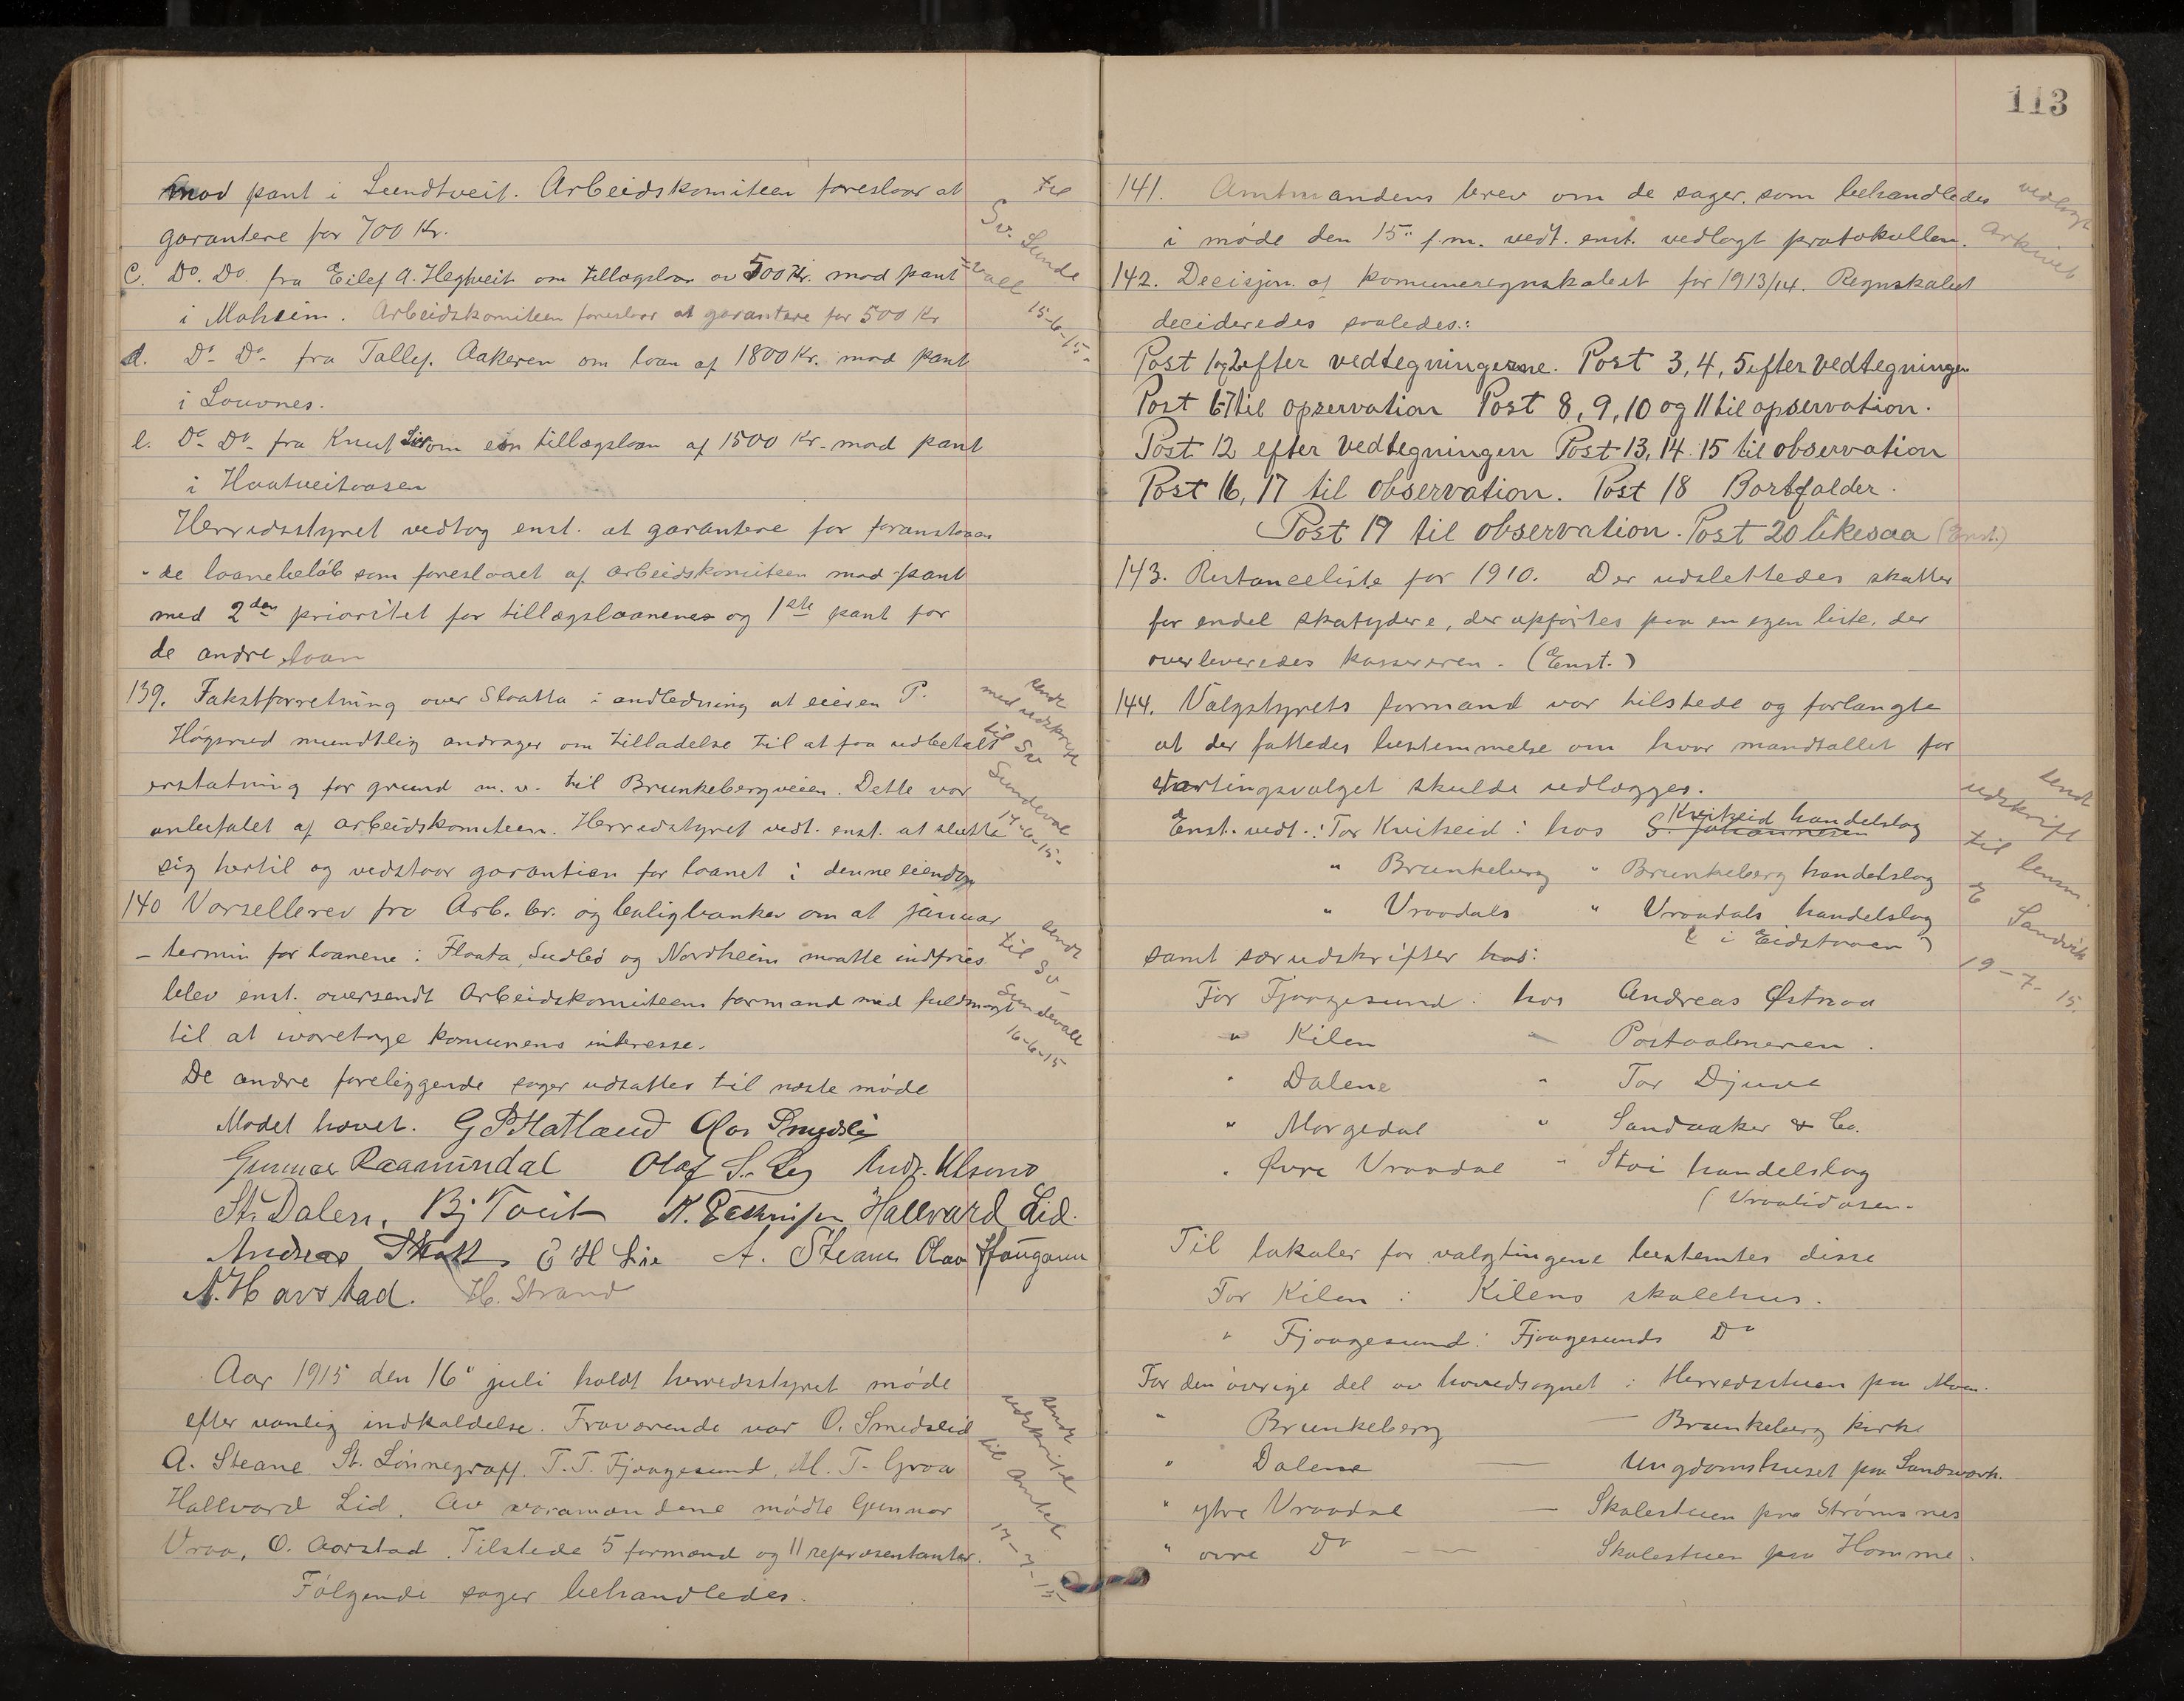 mod pant i Lundtveit. Arbeidskomiteen foreslaar at
garantere for 700 Kr.
c. Do. Do. fra Eilef A. Hegtveit om tillægslaan av 500 Kr. mod pant
i Moheim. Arbeidskomiteen foreslaar at garantere for 500 Kr
d. Do- Do- fra Tallef. Aakeren om laan af 1800 Kr. mod pant
i Louvnes.
e. Do- Do- fra Knut Lid om en tillægslaan af 1500 Kr. mod pant
i Haatveitaasen
Herredsstyret vedtog enst. at garantere for foranstaaen
-de laanebeløb som foreslaaet af arbeidskomiteen mod pant
med 2den prioritet for tillægslaanenes og 1ste pant for
de andre laan
til
Sv. Sunde
=vall
15-6-15-
139. Takstforretning over Slaatta i andledning at eieren P.
Høgsrud mundtlig andrager om tilladelse til at faa udbetalt
erstatning for grund m. v. til Brunkebergveien. Dette var
anbefalet af arbeidskomiteen. Herredstyret vedt. enst. at slutte
sig hertil og vedstaar garantien for laanet i denne eiendom
sendt
med udskrift
til Sv.
Sundeval
17-6-15-
140 Varsellerev fra Arb. br. og boligbanken om at januar
- termin for laanene i Flaata, Sudbø og Nordheim maatte indfries
blev enst. oversendt Arbeidskomiteens formand med fuldmagt
til at ivaretage komunens interesse.
sendt
til Sv-
Sundevall
16-6-15
De andre foreliggende sager udsattes til næste møde
Mødet hævet. G P Hatland Olav Smedsli
Gunnar Raamundal Olaf S. Ly Andr. Ulsono
St. Dalen, Bj Tveit Hallvard Lid.
Andreas E H Lie A. Steane Olav Haugann
N. Harstad. H. Strand
Aar 1915 den 16" juli holdt herredsstyret møde
efter vanlig indkaldelse. Fraværende var O. Smedslid
A. Steane St. Lønnegraff. T. T. Fjaagesund, M. T. Groa
Hallvard Lid. Av varamændene mødte Gunnar
Vraa, O. Aarstad. Tilstede 5 formænd og 11 repræsentanter.
Følgende sager behandledes.
sendt
udskrift
til amtet
17-7-15-
113
141. Amtmandens brev om de sager som behandledes
i møde den 15" f.m. vedt. enst. vedlagt protokollen.
vedlagt
arkivet
142. Decisjon af komuneregnskabet for 1913/14. Regnskabet
decideredes saaledes:
Post 1 og 2 efter vedtegningerne. Post 3, 4, 5 efter vedtegningen
Post 6-7 til opservation Post 8, 9, 10 og 11 til opservation.
Post 12 efter vedtegningen Post 13, 14. 15 til observation
Post 16, 17 til observation. Post 18 Bortfalder.
Post 19 til observation. Post 20 likesaa (Enst.)
143. Restanceliste for 1910. Der udslettedes skatter
for endel skatydere, der opførtes paa en egen liste, der
overleveredes kassereren. (Enst.)
144. Valgstyrets formand var tilstede og forlangte
at der fattedes bestemmelse om hvor mandtallet for
startingsvalget skulde udlægges.
Kviteid handelslag
Enst. vedt.: For Kviteid: hos S. Johannesen
" Brunkeberg " Brunkeberg handelslag
" Vraadals " Vraadals handelslag
( i Eidstaaen )
samt særudskrifter hos:
sendt
udskrift
til lensm.
E Sandvik
19-7-15.
For Fjaagesund: hos Andreas Østraa
" Kilen - Postaabneren.
" Dalene " Tor Djuve
" Morgedal " Sandaaker & Co.
" Øvre Vraadal " Stoi handelslag
( Vraalidosen.
Til lokaler for valgtingene bestemtes disse
For Kilen : Kilens skolehus.
" Fjaagesund: Fjaagesunds Do
For den øvrige del av hovedsognet : Herredsstuen paa Moen.
" Brunkeberg — Brunkeberg kirke
" Dalene — Ungdomshuset paa Sandsvark.
" ytre Vraadal — Skolestuen paa Strømsnes
" øvre Do — — Skolestuen paa Homme.